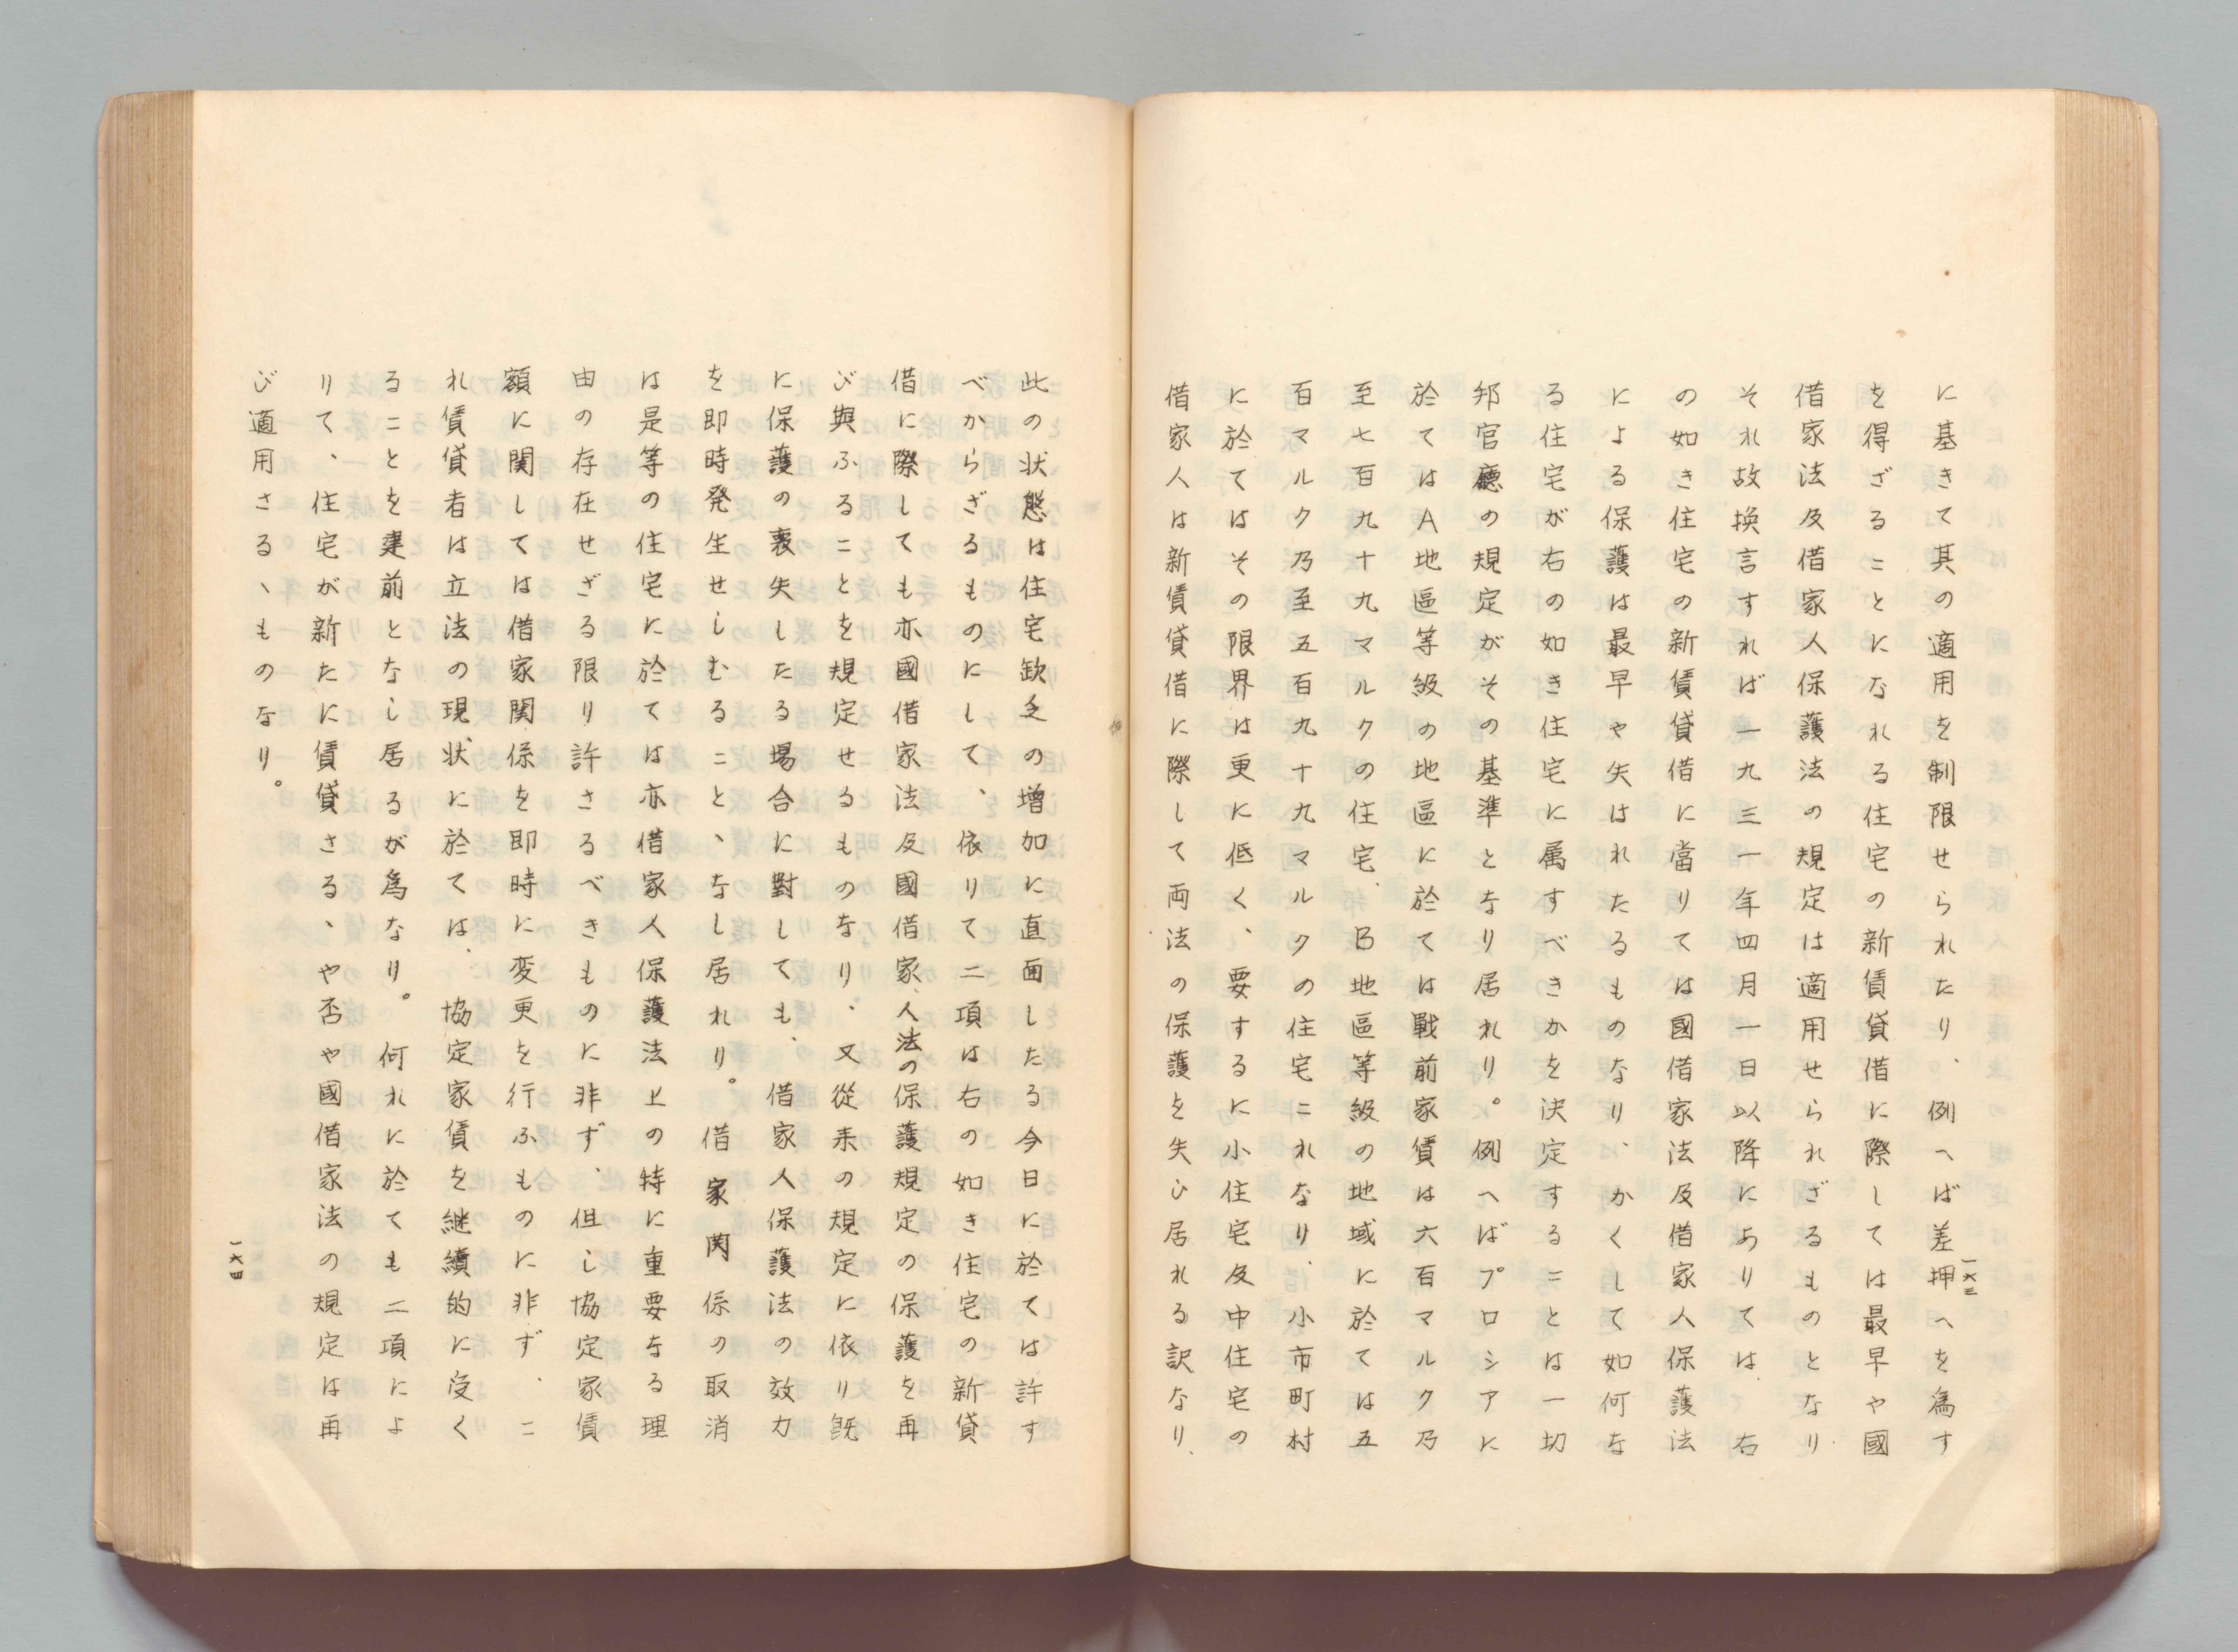 に基きて其の適用を制限せられたり、例へば差押へを為す
を得ざることになれる住宅の新賃貸借に際しては最早や國
借家法及借家人保護法の規定は適用せられざるものとなり
それ故換言すれば一九三一年四月一日以降にありては、右
の如き住宅の新賃貸借に當りては國借家法及借家人保護法
による保護は最早や失はれたるものなり、かくして如何な
る住宅が右の如き住宅に属すべきかを決定することは一切
邦官廳の規定がその基準となり居れり。例へばプロシアに
於てはA地區等級の地區に於ては戰前家賃は六百マルク乃
至七百九十九マルクの住宅、B地區等級の地域に於ては五
百マルク乃至五百九十九マルクの住宅これなり、小市町村
に於てはその限界は更に低く、要するに小住宅及中住宅の
借家人は新賃貸借に際して両法の保護を失ひ居れる訳なり、
一六三
此の状態は住宅欽乏の増加に直面したる今日に於ては許す
べからざるものにして、依りて二項は右の如き住宅の新貸
借に際しても亦國借家法及國借家人法の保護規定の保護を再
び與ふることを規定せるものなり、又從来の規定に依り既
に保護の喪失したる場合に對しても、借家人保護法の效力
を即時発生せしむること、なし居れり。借家関係の取消
は是等の住宅に於ては亦借家人保護法上の特に重要なる理
由の存在せざる限り許さるべきものに非ず、但し協定家賃
額に関しては借家関係を即時に変更を行ふものに非ず、こ
れ賃貸者は立法の現状に於ては、協定家賃を継續的に受く
ることを建前となし居るが為なり。何れに於ても二項によ
りて、住宅が新たに賃貸さるゝや否や國借家法の規定は再
び適用さるゝものなり。
一六四